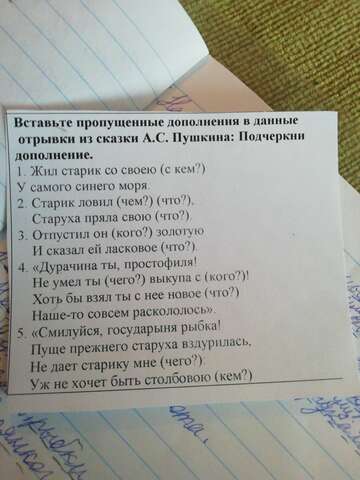 Вставьте пропущенные дополнения в данные
отрывки из сказки А.С. Пушкина: Подчеркни
дополнение.
1. Жил старик со своею (с кем?)
У самого синего моря.
2. Старик ловил (чем?) (что?),
Старуха пряла свою (что?).
3. Отпустил он (кого?) золотую
И сказал ей ласковое (что?).
4. «Дурачина ты, простофиля!
Не умел ты (чего?) выкупа с (кого?)!
Хоть бы взял ты с нее новое (что?)
Наше-то совсем раскололось».
5. «Смилуйся, государыня рыбка!
Пуще прежнего старуха вздурилась,
Не дает старику мне (чего?).
Уж не хочет быть столбовою (кем?)